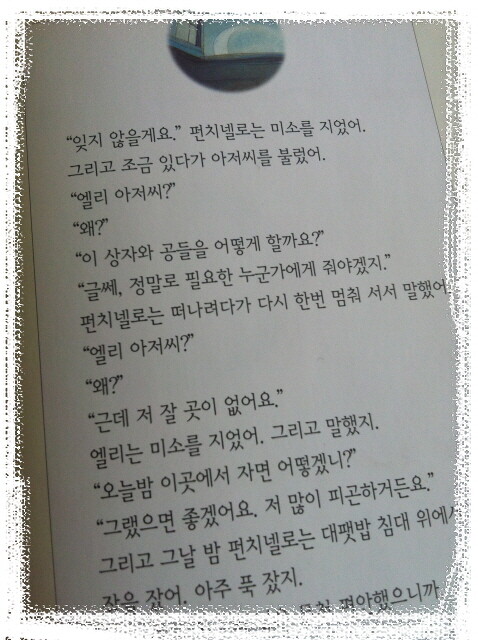 “잊지 않을게요.” 펀치넬로는 미소를 지었어.
그리고 조금 있다가 아저씨를 불렀어.
“엘리 아저씨?”
“왜?”
“이 상자와 공들을 어떻게 할까요?”
“글쎄, 정말로 필요한 누군가에게 줘야겠지.”
펀치넬로는 떠나려다가 다시 한번 멈춰 서서 말했어.
“엘리 아저씨?”
“왜?”
“근데 저 잘 곳이 없어요.”
엘리는 미소를 지었어. 그리고 말했지.
“오늘밤 이곳에서 자면 어떻겠니?”
“그랬으면 좋겠어요. 저 많이 피곤하거든요.”
그리고 그날 밤 펀치넬로는 대팻밥 침대 위에서
잠을 잤어. 아주 푹 잤지.
편안했으니까